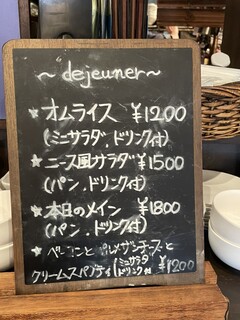 ~ dejeuner ~
★ オムライス ¥1200
(ミニサラダ、ドリンク付)
★ニース風サラダ¥1500
(パン、ドリンク付)
★本日のメイン ¥1800
(パン、ドリンク付)
★ベーコンとパルメザンチーズと
クリームスパゲティ(ミニサラダ ドリンク付 ¥1200